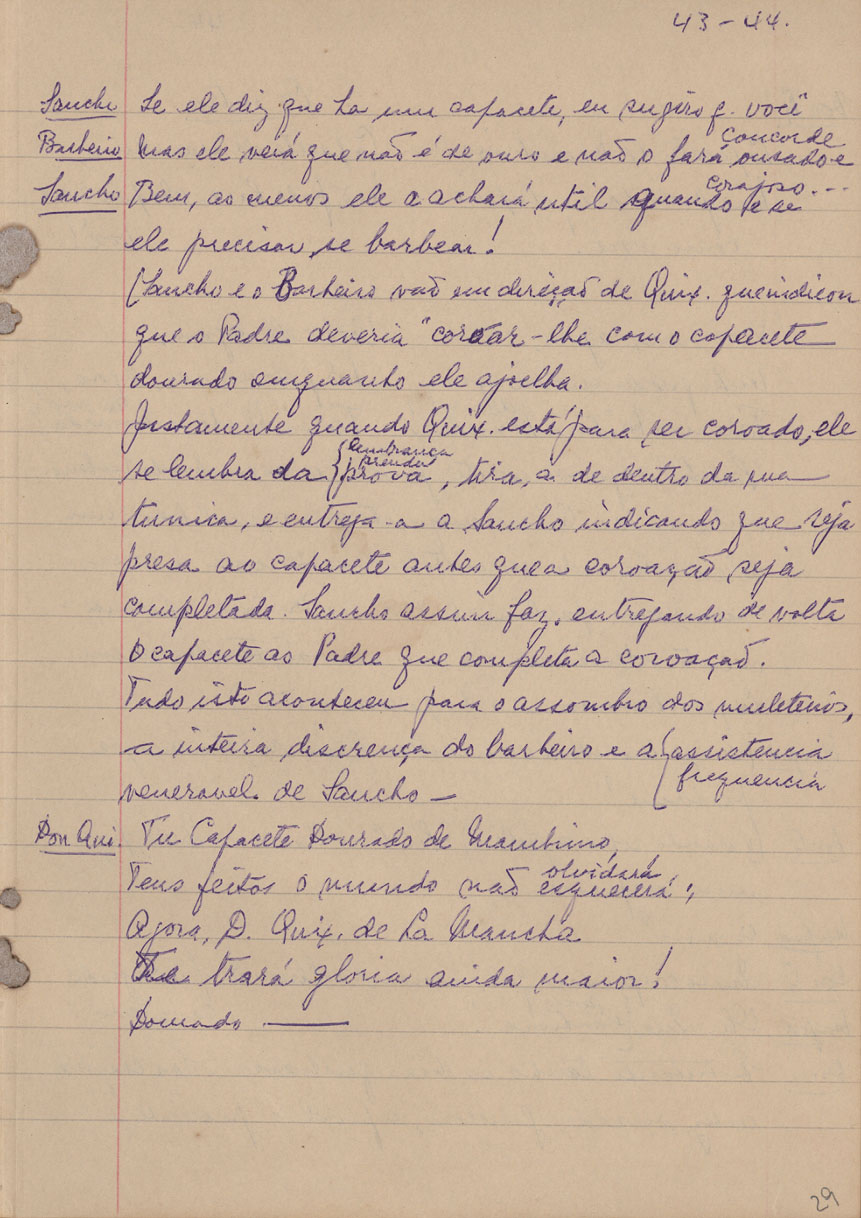 43-44.
Sancho Se ele diz que ha um capacete, eu sugiro q. você
concorde
Barbeiro Mas ele verá que não é de ouro e não o fará ousado e
corajoso...
Sancho Bem, ao menos ele o achará util quando e se
ele precisar se barbear!
(Sancho e o Barbeiro vaõ em direçaõ de Quix. que indicou
que o Padre deveria "coroar-lhe com o capacete
dourado emquanto ele ajoelha.
Justamente quando Quix. está para ser coroado, ele
lembrança
prenda
se lembra da { prova, tira, a de dentro da sua
tunica, e entrega-a a Sancho indicando que seja
presa ao capacete antes que a coroaçaõ seja
completada. Sancho assim faz, entregando de volta
o capacete ao Padre que completa a coroaçaõ.
Tudo isto aconteceu para o assombro dos muleteiros,
a inteira discrença do barbeiro e a { assistencia
frequencia
veneravel de Sancho —
Don Qui. Tu Capacete Dourado de Mambrino,
olvidará
Teus feitos o mundo naõ esquecerá;
Agora, D. Quix. de La Mancha
Te trará gloria ainda maior!
Dourado ———
29